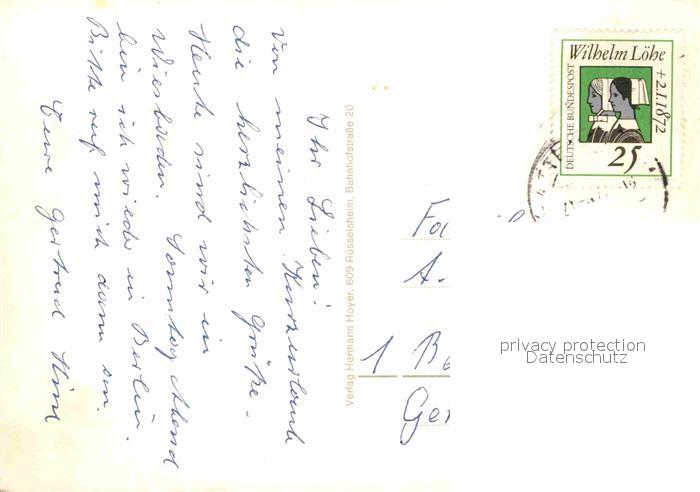 Ihr Lieben!
Von meinem Kurzurlaub
die herzlichsten Grüße.
Heute sind wir in
Wiesbaden. Sonntag Abend
bin ich wieder in Berlin.
Bitte ruf mich dann an.
Eure Gertrud
Verlag Hermann Hoyer, 609 Rüsselsheim, Bahnhofstraße 20
Wilhelm Löhe
+2.1.1872
DEUTSCHE BUNDESPOST
25
A.
1 B
Ge
privacy protection
Datenschutz